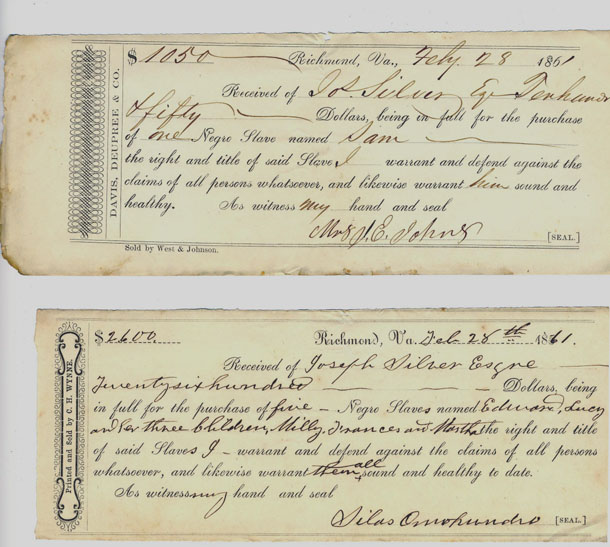 DAVIS, DEUPREE & CO.
$ 1050 Richmond, Va., Feby. 28 1861.
Received of Jos. Silver Eqr Tenhundrd
& fifty Dollars, being in full for the purchase
of one Negro Slave named Sam
the right and title of said Slave I warrant and defend against the
claims of all persons whatsoever, and likewise warrant him sound and
healthy. As witness my hand and seal
Mrs J. E. Johns
[SEAL.]
Sold by West & Johnson.
Printed and Sold by C. H. WYNNE.
$2600 Richmond, Va. Feb 28th 1861.
Received of Joseph Silver Esqre
Twentysixhundred Dollars, being
in full for the purchase of five Negro Slaves named Edward, Lucy
and her three Children, Milly, Frances and Martha the right and title
of said Slaves I warrant and defend against the claims of all persons
whatsoever, and likewise warrant them all sound and healthy to date.
As witness my hand and seal
Silas Omohundro [SEAL.]